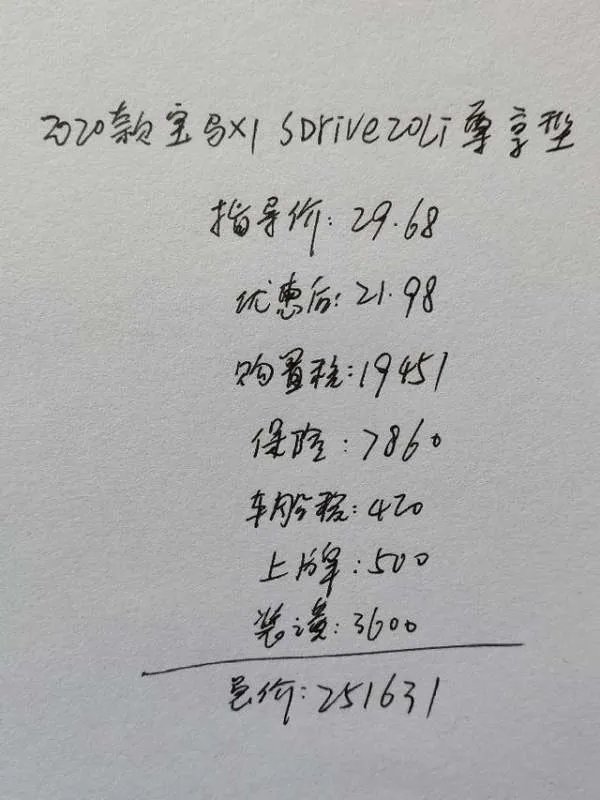 2020款宝马X1 SDrive20Li尊享型
指导价:29.68
优惠后:21.98
购置税:19451
保险:7860
车船税:420
上牌:500
装潢:3600
总价:251631